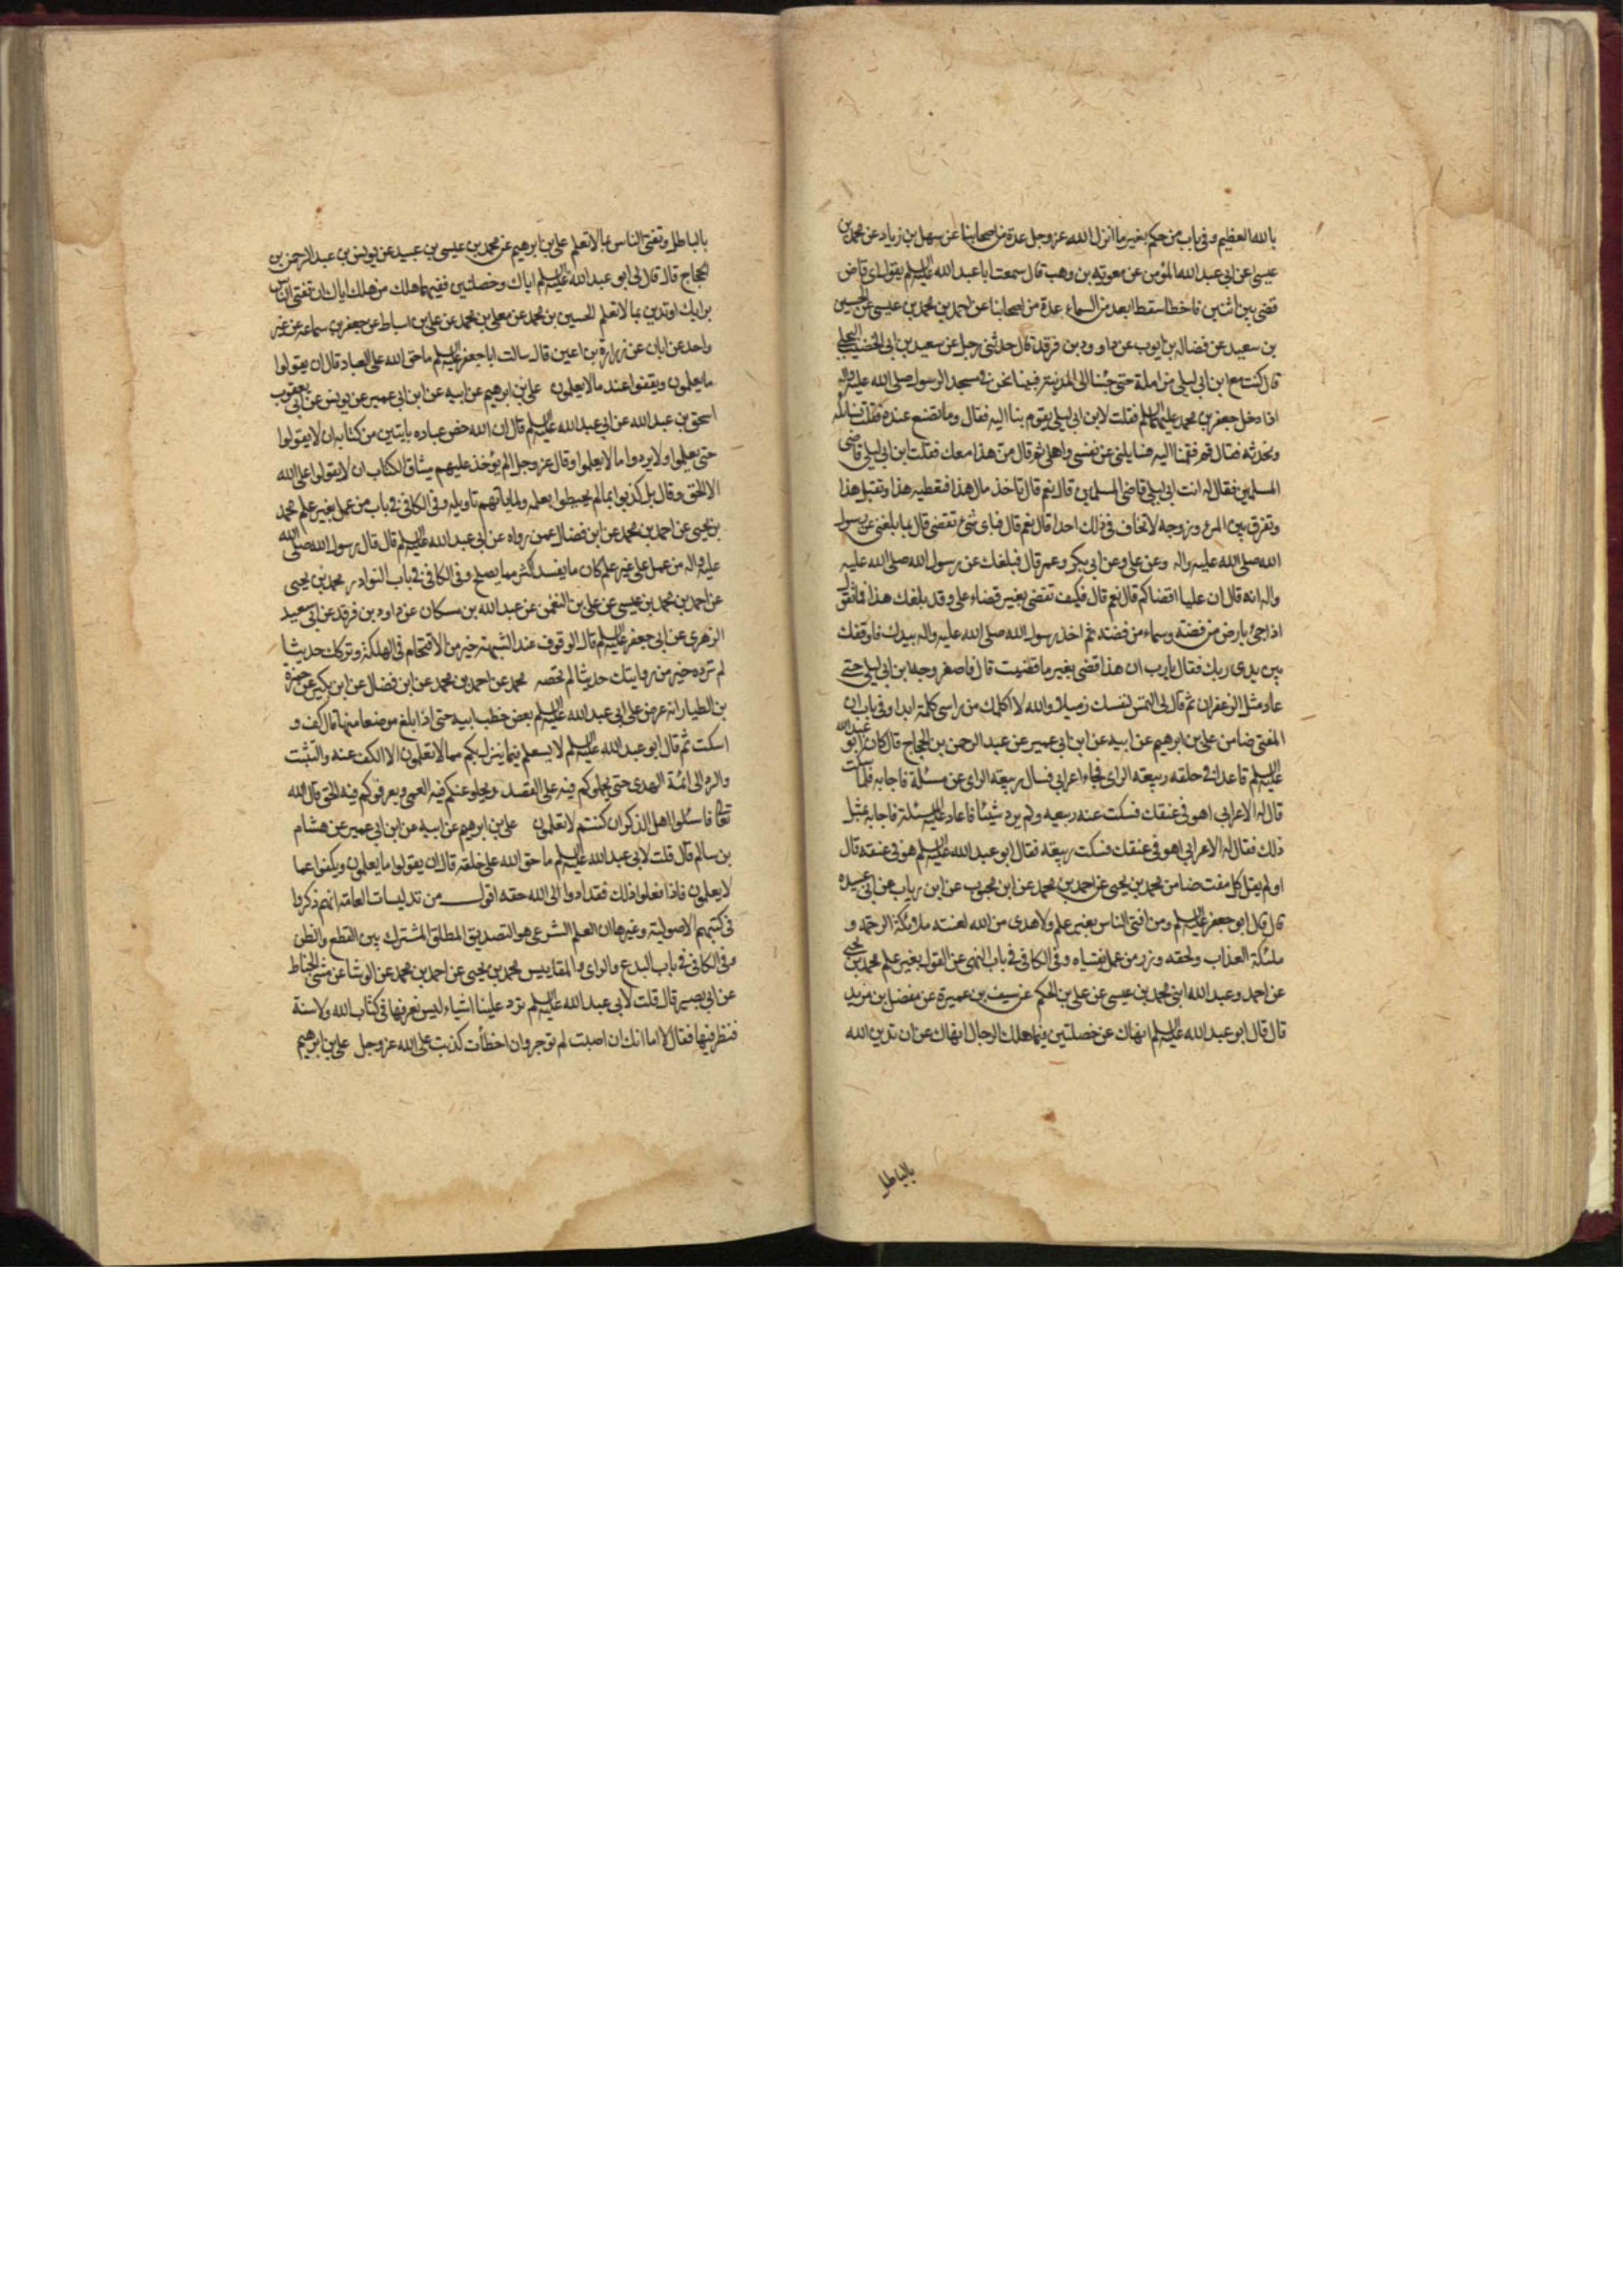 بالله العظيم وفى باب من حكم بغير ما انزل الله عز وجل عدة من اصحابنا عن سهل بن زياد عن محمد بن
عيسى عن ابى عبد الله المؤمن عن معويه بن وهب قال سمعت ابا عبد الله عليه السلم يقول اى قاض
قضى بين اثنين فاخطا سقط ابعد من السماء عدة من اصحابنا عن احمد بن محمد بن عيسى عن الحسين
بن سعيد عن فضاله بن ايوب عن داوود بن فرقد قال حدثنى رجل عن سعيد بن ابى الخضيب البجلى
قال كنت مع ابن ابى ليلى مزاملة حتى جئنا الى المدينة فبينا نحن فى مسجد الرسول صلى الله عليه واله
اذا دخل جعفر بن محمد عليهما السلم فقلت لابن ابى ليلى يقوم بنا اليه فقال وما نصنع عنده فقلت نسائله
ونحدثه فقال قم فقمنا اليه فسايلنى عن نفسى واهلى ثم قال من هذا معك فقلت ابن ابى ليلى قاضى
المسلمين فقال له انت ابى ليلى قاضى المسلمين قال نعم قال تاخذ مال هذا فتعطيه هذا وتقتل هذا
وتفرق بين المرء وزوجه لا تخاف فى ذلك احدا قال نعم قال فباى شئ تقضى قال بما بلغنى عن رسول
الله صلى الله عليه واله وعن على وعن ابى بكر وعمر قال فبلغك عن رسول الله صلى الله عليه
واله انه قال ان عليا اقضاكم قال نعم قال فكيف تقضى بغير قضاء على وقد بلغك هذا فما تقول
اذا جئ بارض من فضته وسماء من فضته ثم اخذ رسول الله صلى الله عليه واله بيدك فاوقفك
بين يدى ربك فقال يا رب ان هذا قضى بغير ما قضيت قال فاصفر وجه ابن ابى ليلى حتى
عاد مثل الزعفران ثم قال لى التمس لنفسك زميلا والله لا اكلمك من راسى كلمة ابدا وفى باب ان
المفتى ضامن على بن ابرهيم عن ابيه عن ابن ابى عمير عن عبد الرحمن بن الحجاج قال كان ابو عبد الله
عليه السلم قاعدا فى حلقه ربيعه الراى فجاء اعرابى فسال ربيعه الراى عن مسئلة فاجابه فلما سكت
قال له الاعرابى اهو فى عنقك فسكت عنه ربيعه ولم يرد شيئا فاعاد عليه المسئلة فاجابه بمثل
ذلك فقال له الاعرابى اهو فى عنقك فسكت ربيعه فقال ابو عبد الله عليه السلم هو فى عنقه قال
او لم يقل كل مفت ضامن محمد بن يحيى عن احمد بن محمد عن ابن محبوب عن ابن رياب عن ابى عبيده
قال قال ابو جعفر عليه السلم ومن افتى الناس بغير علم ولا هدى من الله لعنته ملائكة الرحمة و
ملئكة العذاب ولحقه وزر من عمل بفتياه وفى الكافى فى باب النهى عن القول بغير علم محمد بن يحيى
عن احمد وعبد الله ابنى محمد بن عيسى عن على بن الحكم عن سيف بن عميرة عن مفضل بن مزيد
قال قال ابو عبد الله عليه السلم انهاك عن خصلتين فيهما هلك الرجال انهاك عن ان تدين الله
بالباطل
بالباطل وتفتى الناس بما لا تعلم على بن ابرهيم عن محمد بن عيسى بن عبيد عن يونس بن عبد الرحمن بن
الحجاج قال قال لى ابو عبد الله عليه السلم اياك وخصلتين ففيهما هلك من هلك اياك ان تفتى الناس
برايك او تدين بما لا تعلم الحسين بن محمد عن معلى بن محمد عن على بن اسباط عن جعفر بن سماعه عن غير
واحد عن ابان عن زرارة بن اعين قال سالت ابا جعفر عليه السلم ما حق الله على العباد قال ان يقولوا
ما يعلمون ويقفوا عند ما لا يعلمون على بن ابرهيم عن ابيه عن ابن ابى عمير عن يونس عن ابى يعقوب
اسحق بن عبد الله عن ابى عبد الله عليه السلم قال ان الله خص عباده بايتين من كتابه ان لا يقولوا
حتى يعلموا ولا يردوا ما لا يعلموا وقال عز وجل الم يؤخذ عليهم ميثاق الكتاب ان لا يقولوا على الله
الا الحق وقال بل كذبوا بما لم يحيطوا بعلمه ولما ياتهم تاويله وفى الكافى فى باب من عمل بغير علم محمد
بن يحيى عن احمد بن محمد عن ابن فضال عمن رواه عن ابى عبد الله عليه السلم قال قال رسول الله صلى الله
عليه واله من عمل على غير علم كان ما يفسد اكثر مما يصلح وفى الكافى فى باب النوادر محمد بن يحيى
عن احمد بن محمد بن عيسى عن على بن النعمن عن عبد الله بن مسكان عن داود بن فرقد عن ابى سعيد
الزهرى عن ابى جعفر عليه السلم قال الوقوف عند الشبهة خير من الاقتحام فى الهلكة وتركك حديثا
لم تروه خير من روايتك حديثا لم تحصه محمد عن احمد بن محمد عن ابن فضال عن ابن بكير عن حمزة
بن الطيار انه عرض على ابى عبد الله عليه السلم بعض خطب ابيه حتى اذا بلغ موضعا منها قال كف و
اسكت ثم قال ابو عبد الله عليه السلم لا يسعكم فيما ينزل بكم مما لا تعلمون الا الكف عنه والتثبت
والرد الى ائمة الهدى حتى يحملوكم فيه على القصد ويجلو عنكم فيه العمى ويعرفوكم فيه الحق قال الله
تعالى فاسئلوا اهل الذكر ان كنتم لا تعلمون على بن ابرهيم عن ابيه عن ابن ابى عمير عن هشام
بن سالم قال قلت لابى عبد الله عليه السلم ما حق الله على خلقه قال ان يقولوا ما يعلمون ويكفوا عما
لا يعلمون فاذا فعلوا ذلك فقد ادوا الى الله حقه اقول من تدليسات العامه انهم ذكروا
فى كتبهم الاصولية وغيرها ان العلم الشرعى هو التصديق المطلق المشترك بين القطع والظن
وفى الكافى فى باب البدع والراى والمقاييس محمد بن يحيى عن احمد بن محمد عن الوشا عن مثنى الحناط
عن ابى بصير قال قلت لابى عبد الله عليه السلم ترد علينا اشياء ليس نعرفها فى كتاب الله ولا سنة
فننظر فيها فقال لا اما انك ان اصبت لم توجر وان اخطأت كذبت على الله عز وجل على بن ابرهيم